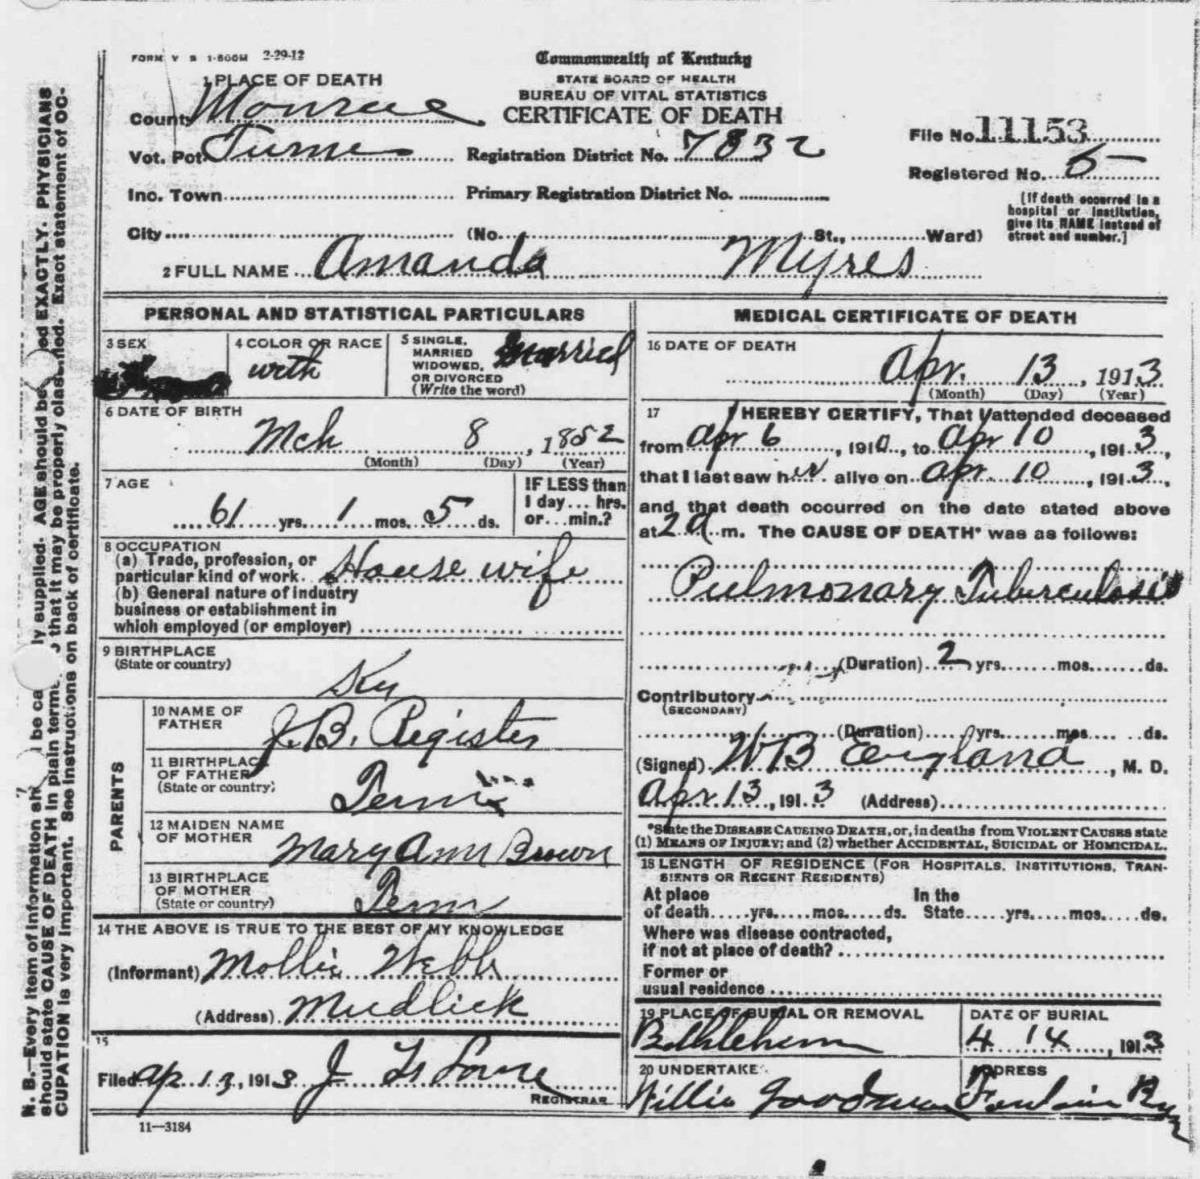 FORM V S 1-500M 2-29-12
Commonwealth of Kentucky
STATE BOARD OF HEALTH
BUREAU OF VITAL STATISTICS
CERTIFICATE OF DEATH
1 PLACE OF DEATH
County Monroe
Vot. Pct.
Registration District No. 7832
File No. 11153
Registered No. 5
Inc. Town
Primary Registration District No.
[If death occurred in a hospital or institution, give its NAME instead of street and number.]
City (No. St., Ward)
2 FULL NAME Amanda Myres
PERSONAL AND STATISTICAL PARTICULARS
3 SEX
4 COLOR OR RACE
with
5 SINGLE, MARRIED WIDOWED, OR DIVORCED (Write the word) Married
6 DATE OF BIRTH
Mch 8, 1852
(Month) (Day) (Year)
7 AGE
61 yrs. 1 mos. 5 ds.
IF LESS than 1 day... hrs. or... min.?
8 OCCUPATION
(a) Trade, profession, or
particular kind of work. House wife
(b) General nature of industry
business or establishment in
which employed (or employer)
9 BIRTHPLACE
(State or country)
Ky
PARENTS
10 NAME OF FATHER
J. B. Register
11 BIRTHPLACE OF FATHER
(State or country)
Tenn
12 MAIDEN NAME OF MOTHER
Mary Ann Brown
13 BIRTHPLACE OF MOTHER
(State or country)
Tenn
14 THE ABOVE IS TRUE TO THE BEST OF MY KNOWLEDGE
(Informant) Mollie Webb
(Address) Mudlick
15
Filed Ap 13, 1913 J
REGISTRAR
11-3184
MEDICAL CERTIFICATE OF DEATH
16 DATE OF DEATH
Apr. 13, 1913
(Month) (Day) (Year)
17 I HEREBY CERTIFY, That I attended deceased
from Apr 6, 191, to Apr 10, 1913,
that I last saw her alive on Apr. 10, 1913,
and that death occurred on the date stated above
at 2 a m. The CAUSE OF DEATH* was as follows:
Pulmonary Tuberculosis
(Duration) 2 yrs. mos. ds.
Contributory
(SECONDARY)
(Duration) yrs. mos. ds.
(Signed) WB England, M. D.
Apr 13, 1913 (Address)
*State the DISEASE CAUSING DEATH, or, in deaths from VIOLENT CAUSES state
(1) MEANS OF INJURY; and (2) whether ACCIDENTAL, SUICIDAL or HOMICIDAL.
18 LENGTH OF RESIDENCE (FOR HOSPITALS, INSTITUTIONS, TRAN-
SIENTS OR RECENT RESIDENTS)
At place In the
of death yrs. mos. ds. State yrs. mos. ds.
Where was disease contracted,
if not at place of death?
Former or
usual residence
19 PLACE OF BURIAL OR REMOVAL
Bethlehem
DATE OF BURIAL
4 14, 1913
20 UNDERTAKER
Willie
ADDRESS
N. B.—Every item of information be ca ly supplied. AGE should be ed EXACTLY. PHYSICIANS
should state CAUSE OF DEATH in plain terms that it may be properly classified. Exact statement of OC-
CUPATION is very important. See instructions on back of certificate.